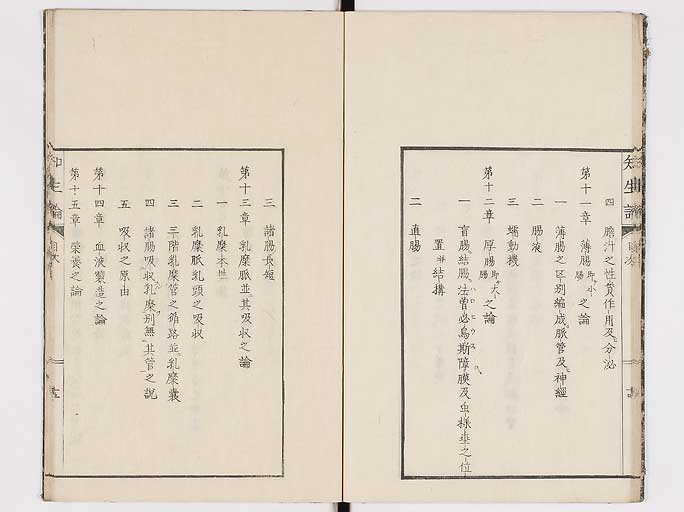 四 膽汁之性質作用及分泌
第十一章 薄腸即小腸之論
一 薄腸之区别編成脈管及神經
二 腸液
三 蠕動機
第十二章 厚腸即大腸之論
一 盲腸結腸法曽必烏斯障膜及虫様垂之位
置並結構
二 直腸
知生論
目次
三 諸腸長短
第十三章 乳糜脈並其吸収之論
一 乳糜本性
二 乳糜脈乳頭之吸収
三 三階乳糜管之循路並乳糜嚢
四 諸腸吸収乳糜别無其管之説
五 吸収之原由
第十四章 血液製造之論
第十五章 栄養之論
知生論
目次